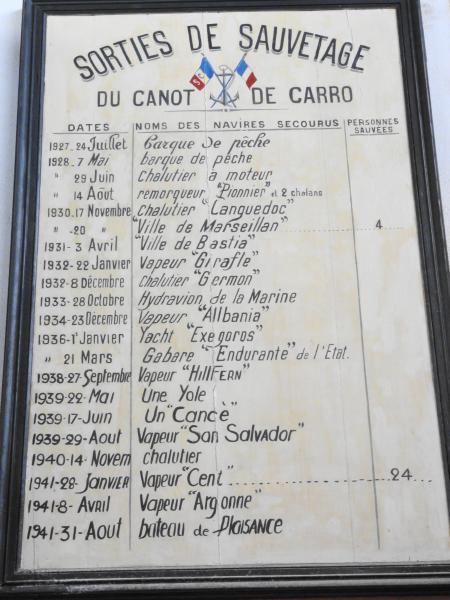 SORTIES DE SAUVETAGE
DU CANOT DE CARRO
DATES NOMS DES NAVIRES SECOURUS PERSONNES SAUVÉES
1927. 24 Juillet barque de pêche
1928. 7 Mai barque de pêche
" 29 Juin Chalutier à moteur
" 14 Août remorqueur "Pionnier" et 2 chalans
1930. 17 Novembre Chalutier "Languedoc"
" -20 " "Ville de Marseillan" 4
1931- 3 Avril "Ville de Bastia"
1932- 22 Janvier Vapeur "Girafle"
1932- 8 Décembre Chalutier "Germon"
1933- 28 Octobre Hydravion de la Marine
1934- 23 Décembre Vapeur "Allbania"
1936- 1er Janvier Yacht "Exegoros"
" 21 Mars Gabare "Endurante" de l'Etat.
1938-27-Septembre Vapeur "HillFern"
1939-22- Mai Une Yole
1939-17-Juin Un "Cancè"
1939-29-Aout Vapeur "San Salvador"
1940-14- Novem chalutier
1941-28- Janvier Vapeur "Cent" 24
1941-8- Avril Vapeur "Argonne"
1941-31-Aout bateau de Plaisance